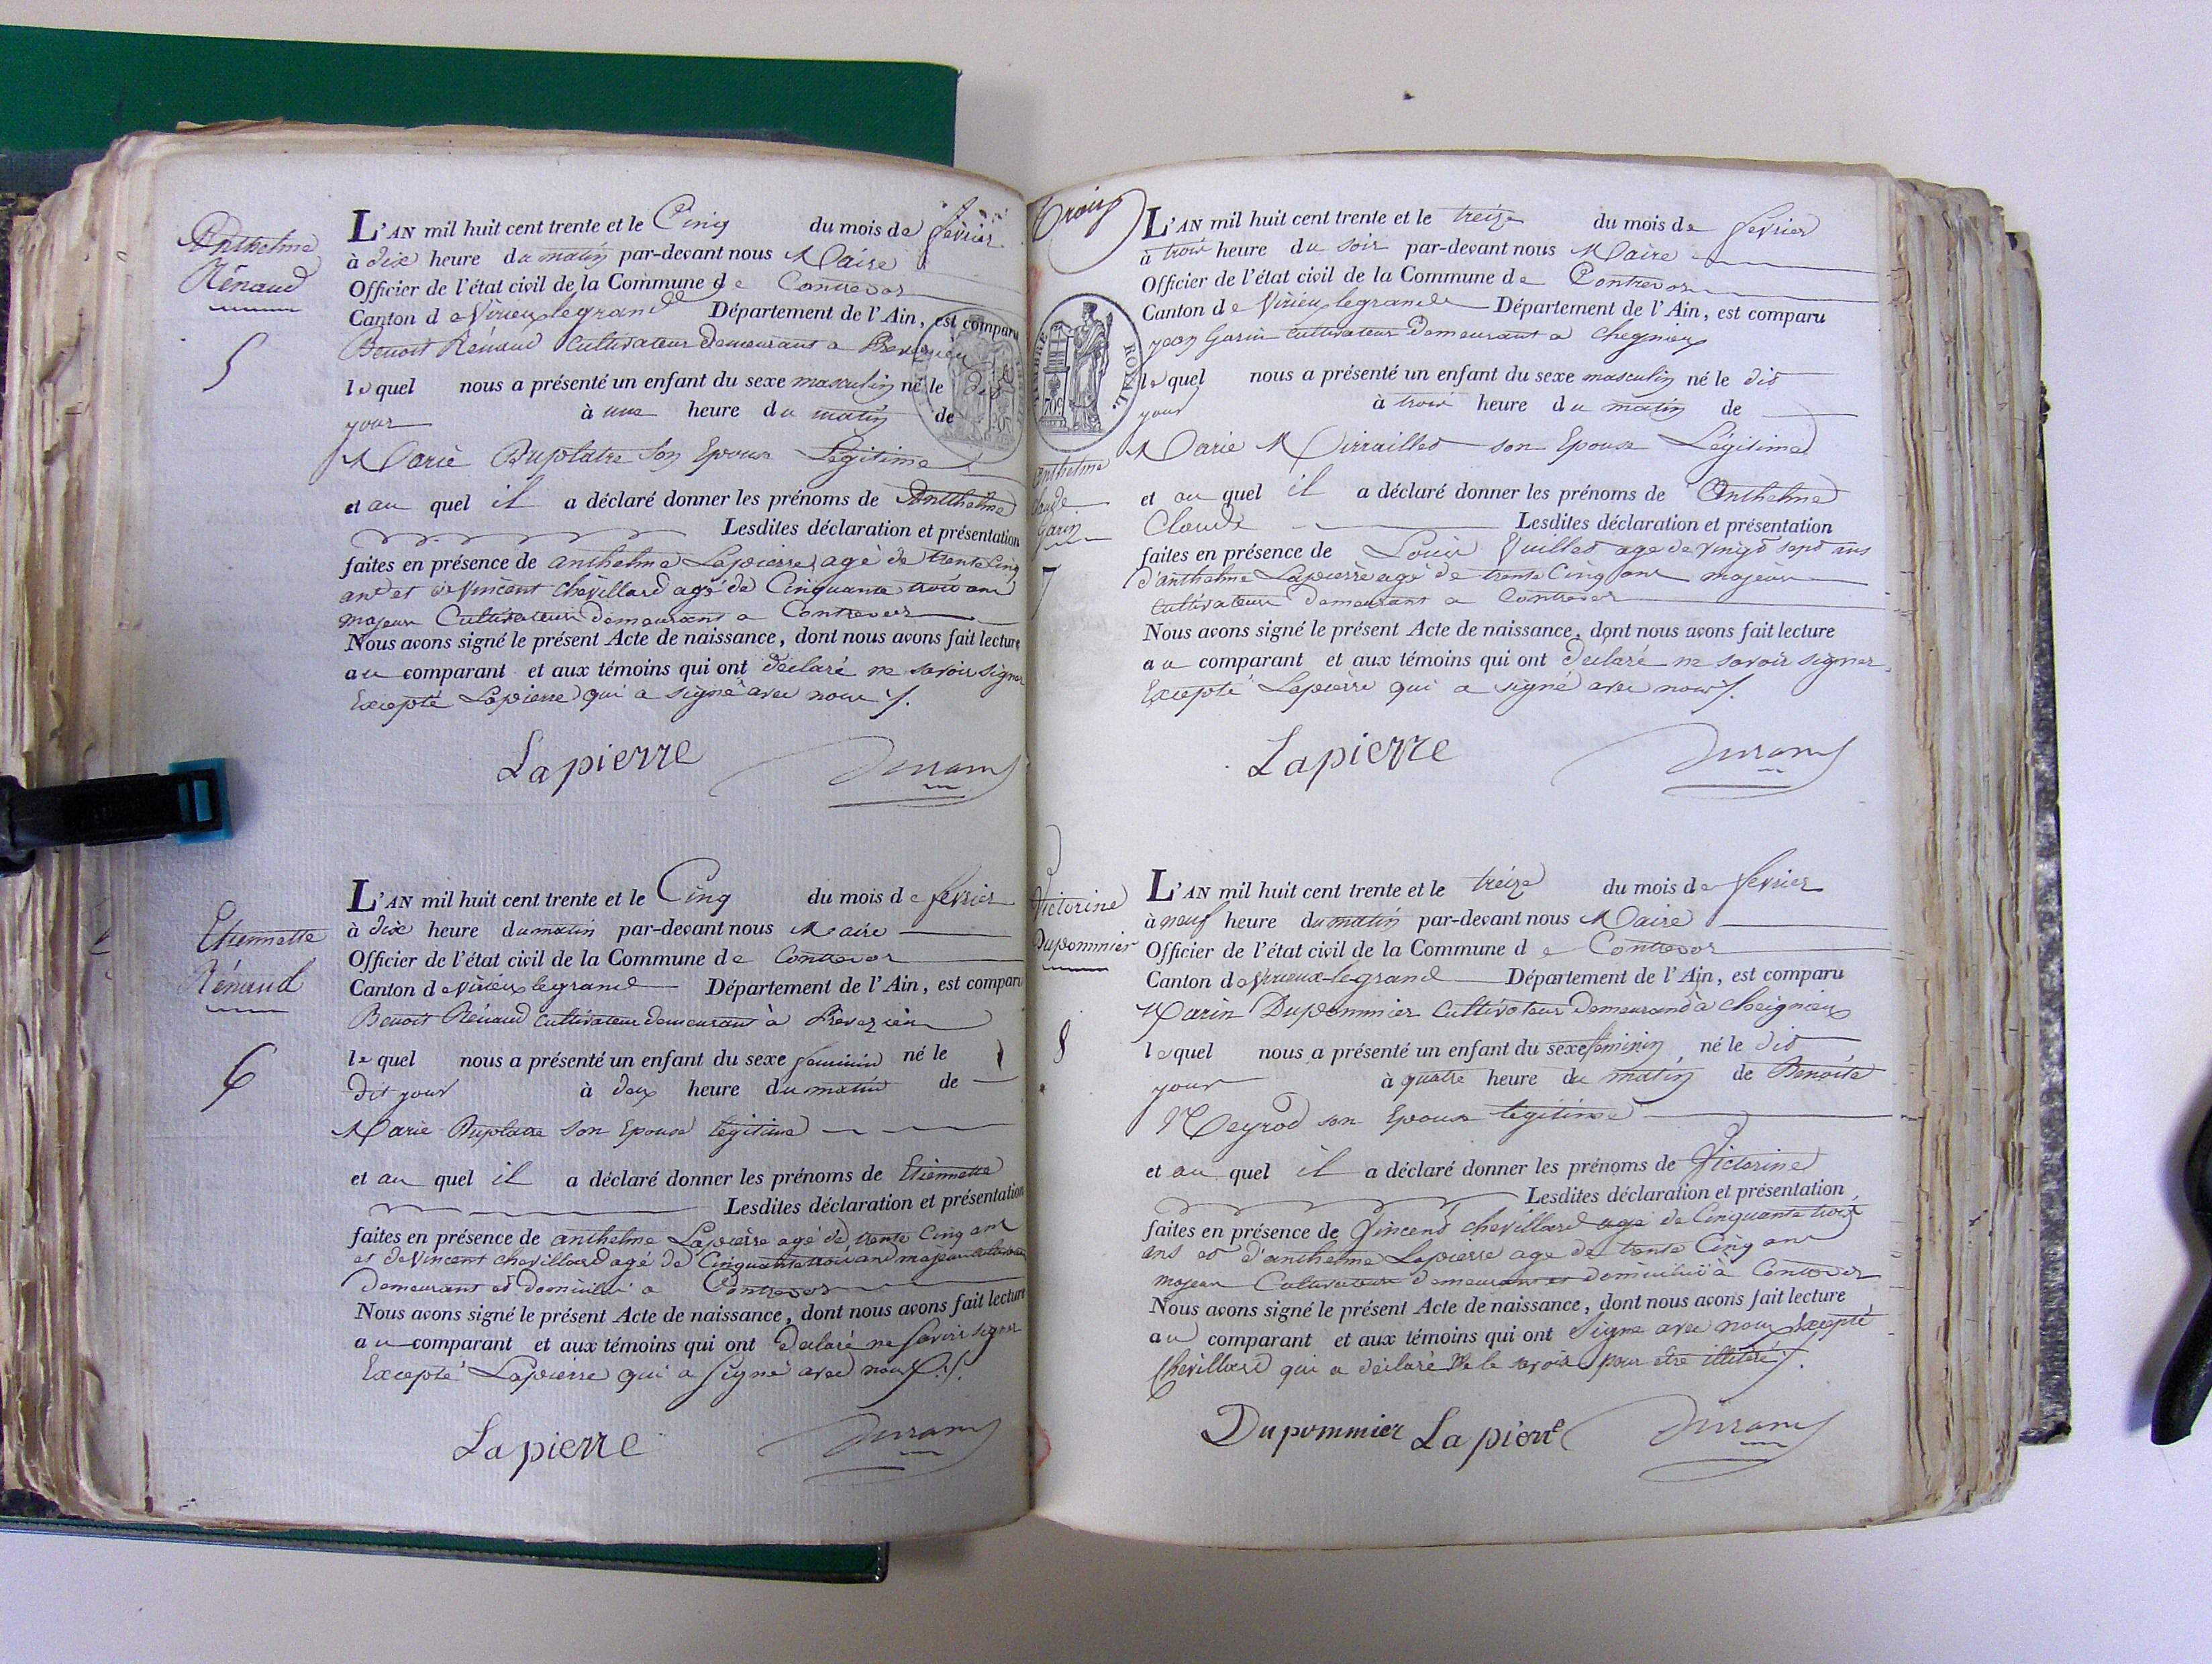 Anthelme
Rénaud
5
L'AN mil huit cent trente et le Cinq du mois de fevrier
à dix heure du matin par-devant nous Maire
Officier de l'état civil de la Commune de Contrevoz
Canton de Virieu legrand Département de l'Ain, est comparu
Benoit Rénaud Cultivateur demeurant a
lequel nous a présenté un enfant du sexe masculin né le dit
jour à une heure du matin de
Marie Duplatre son Epouse Légitime
et au quel il a déclaré donner les prénoms de Anthelme
Lesdites déclaration et présentation
faites en présence de anthelme Lapierre agé de trente Cinq
ans et de Vincent Chevillard agé de Cinquante trois ans
majeur Cultivateur demeurant a Contrevoz
Nous avons signé le présent Acte de naissance, dont nous avons fait lecture
au comparant et aux témoins qui ont déclaré ne savoir signer
Excepté Lapierre qui a signé avec nous ./.
Lapierre Durand
Etiennette
Rénaud
6
L'AN mil huit cent trente et le Cinq du mois de fevrier
à dix heure du matin par-devant nous Maire
Officier de l'état civil de la Commune de Contrevoz
Canton de Virieu legrand Département de l'Ain, est comparu
Benoit Rénaud Cultivateur demeurant à Prevezieu
lequel nous a présenté un enfant du sexe feminin né le
dit jour à deux heure du matin de
Marie Duplatre son Epouse légitime
et au quel il a déclaré donner les prénoms de Etiennette
Lesdites déclaration et présentation
faites en présence de anthelme Lapierre agé de trente Cinq ans
et de Vincent chevillard agé de Cinquante trois ans majeur cultivateur
demeurant et domicilié a Contrevoz
Nous avons signé le présent Acte de naissance, dont nous avons fait lecture
au comparant et aux témoins qui ont declaré ne savoir signer
Excepté Lapierre qui a signé avec nous ./.
Lapierre Durand
Trois
TIMBRE ROYAL.
70c
Anthelme
Claude
Garin
7
L'AN mil huit cent trente et le treize du mois de fevrier
à trois heure du soir par-devant nous Maire
Officier de l'état civil de la Commune de Contrevoz
Canton de Virieu legrand Département de l'Ain, est comparu
jean Garin cultivateur demeurant a chegnieu
lequel nous a présenté un enfant du sexe masculin né le dit
jour à trois heure du matin de
Marie Mirraillet son Epouse Légitime
et au quel il a déclaré donner les prénoms de Anthelme
Claude Lesdites déclaration et présentation
faites en présence de Louis Vuillet age de vingt sept ans
d'anthelme Lapierre agé de trente Cinq ans majeur
Cultivateur demeurant a Contrevoz
Nous avons signé le présent Acte de naissance, dont nous avons fait lecture
au comparant et aux témoins qui ont declaré ne savoir signer
Excepté Lapierre qui a signé avec nous ./.
Lapierre Durand
Victorine
Dupommier
8
L'AN mil huit cent trente et le treize du mois de fevrier
à neuf heure du matin par-devant nous Maire
Officier de l'état civil de la Commune de Contrevoz
Canton de Virieux-legrand Département de l'Ain, est comparu
Marin Dupommier Cultivateur demeurand à cheignieu
lequel nous a présenté un enfant du sexe feminin né le dit
jour à quatre heure du matin de Benoite
Meyrod son Epouse légitime
et au quel il a déclaré donner les prénoms de Victorine
Lesdites déclaration et présentation
faites en présence de Vincend chevillard age de Cinquante trois
ans et d'anthelme Lapierre age de trente Cinq ans
majeur Cultivateur demeurant et domicilié à Contrevoz
Nous avons signé le présent Acte de naissance, dont nous avons fait lecture
au comparant et aux témoins qui ont signe avec nous Excepté
Chevillard qui a déclaré ne le savoir pour être illitéré ./.
Dupommier Lapierre Durand